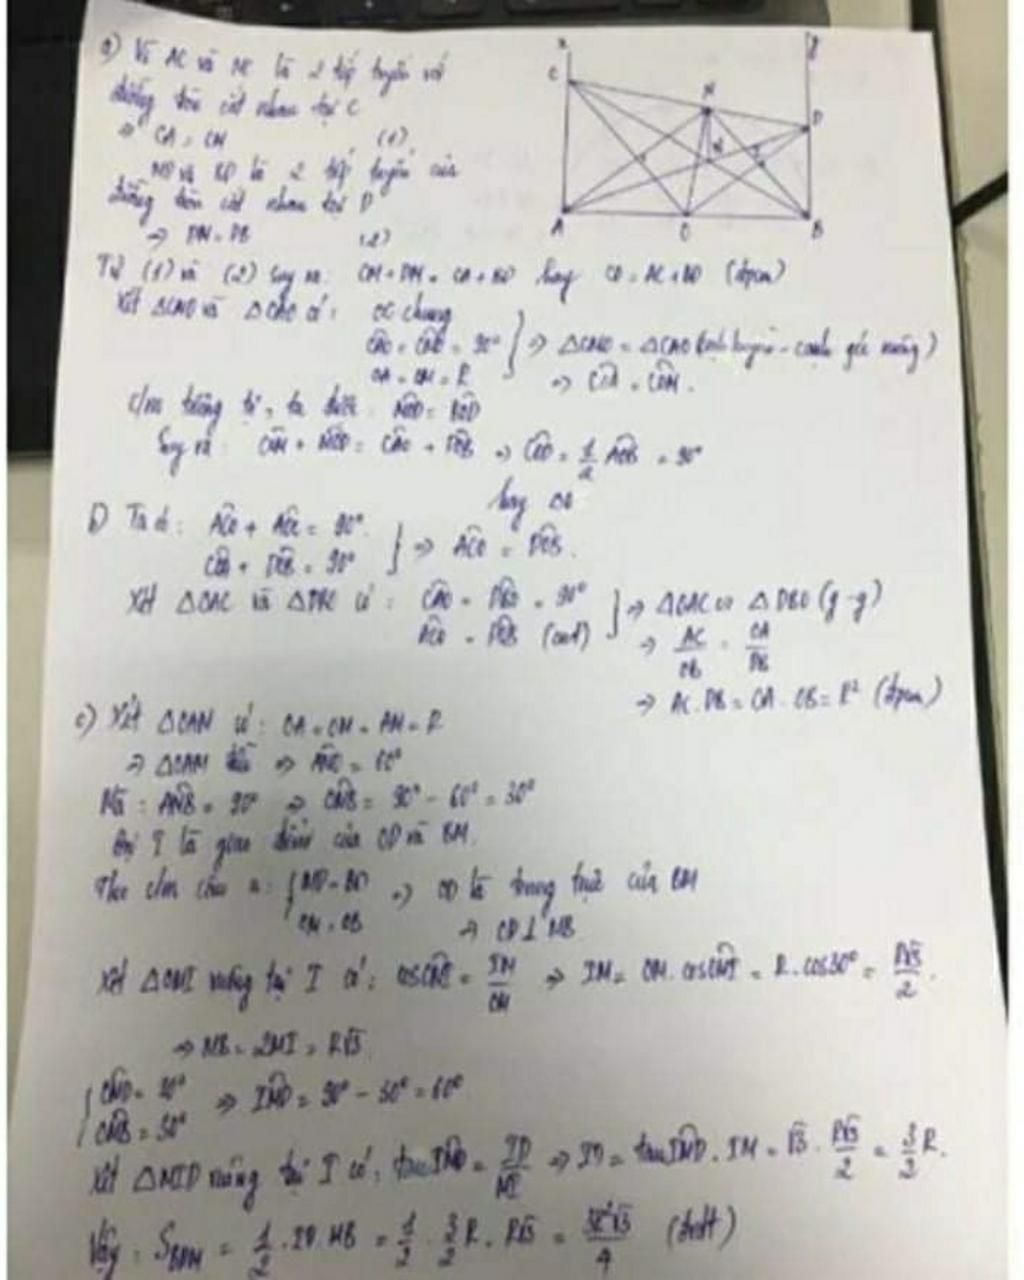 a) Vì AC và MC là 2 tiếp tuyến với
đường tròn cắt nhau tại C
⇒ CA = CM (1)
MD và BD là 2 tiếp tuyến của
đường tròn cắt nhau tại D
⇒ DM = DB (2)
Từ (1) và (2) suy ra: CM + DM = CA + BD hay CD = AC + BD (đpcm)
x
C
M
D
A
O
B
I
Xét ΔCMO và ΔCAO có: OC chung
= 90°
OA = OM = R
⇒ ΔCMO = ΔCAO (cạnh huyền - cạnh góc vuông)
c/m tương tự, ta được: MOD = BOD
Suy ra:
= 1/2 AOB = 90°
hay
b) Ta có: ACO + AOC = 90°
COA + DOB = 90°
⇒ ACO = DOB.
Xét ΔOAC và ΔDBO có: CAO = DBO = 90°
ACO = DOB (cmt)
⇒ ΔOAC ∽ ΔDBO (g-g)
⇒ AC/OB = OA/DB
⇒ AC.DB = OA.OB = R² (đpcm)
c) Xét ΔOAM có: OA = OM = AM = R
⇒ ΔOAM đều ⇒ AMO = 60°
Mà: AMB = 90° ⇒ OMB = 90° - 60° = 30°
Gọi I là giao điểm của OD và BM.
Theo c/m câu a: { MD = BD
OM = OB
⇒ OD là trung trực của BM
⇒ OD ⊥ MB
Xét ΔOMI vuông tại I có: cosOMI = IM/OM ⇒ IM = OM.cosOMI = R.cos30° = R√3/2.
⇒ MB = 2MI = R√3
OMB = 30°
⇒ IMD = 90° - 30° = 60°
Xét ΔMID vuông tại I có: tanIMD = ID/MI ⇒ ID = tanIMD.IM = √3.R√3/2 = 3/2 R.
Vậy: S_BDM = 1/2.ID.MB = 1/2.3/2R.R√3 = 3R²√3/4 (đvdt)